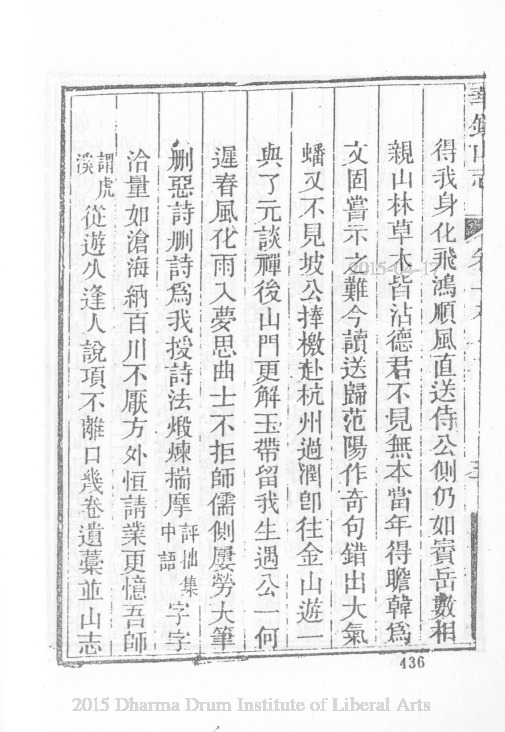 華山志
得我身化飛鴻順風直送侍公側仍如賓岳數相
親山林草木皆沾德君不見無本當年得瞻韓爲
文固嘗示之難今讀送歸范陽作奇句錯出大氣
蟠又不見坡公捧檄赴杭州過潤卽往金山遊一
與了元談禪後山門更解玉帶留我生遇公一何
遲春風化雨入夢思曲士不拒師儒側屢勞大筆
删惡詩删詩爲我授詩法煅煉揣摩評拙集中語字字
洽量如滄海納百川不厭方外恒請業更憶吾師
謂虎溪從遊久逢人說項不離口幾卷遺藁並山志
436
2015-04-17
2015 Dharma Drum Institute of Liberal Arts